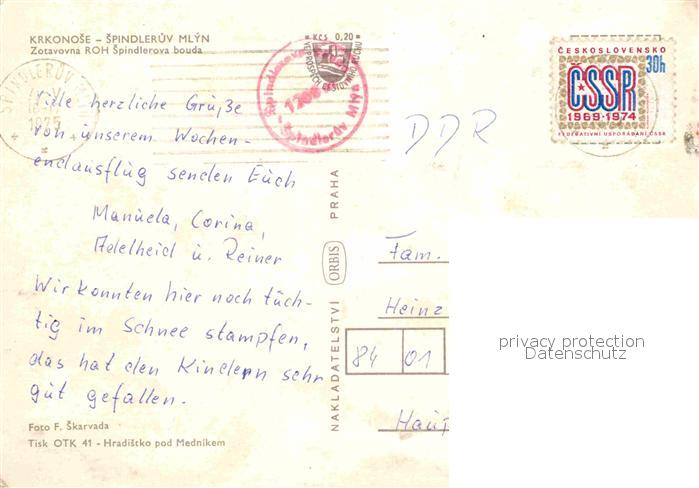 KRKONOŠE – ŠPINDLERŮV MLÝN
Zotavovna ROH Špindlerova bouda
Kčs 0,20
VE PROSPĚCH CESTOVNÍHO RUCHU
ŠPINDLERŮV
1975
1208
- Špindlerův Mlýn
ČESKOSLOVENSKO
30h
ČSSR
1969-1974
FEDERATIVNÍ USPOŘÁDÁNÍ ČSSR
DDR
Viele herzliche Grüße
von unserem Wochen-
endausflug senden Euch
Manuela, Corina,
Adelheid u. Reiner
Wir konnten hier noch tüch-
tig im Schnee stampfen,
das hat den Kindern sehr
gut gefallen.
Foto F. Škarvada
Tisk OTK 41 - Hradištko pod Medníkem
NAKLADATELSTVÍ ORBIS PRAHA
Fam.
Heinz
84 01
Haup
privacy protection
Datenschutz